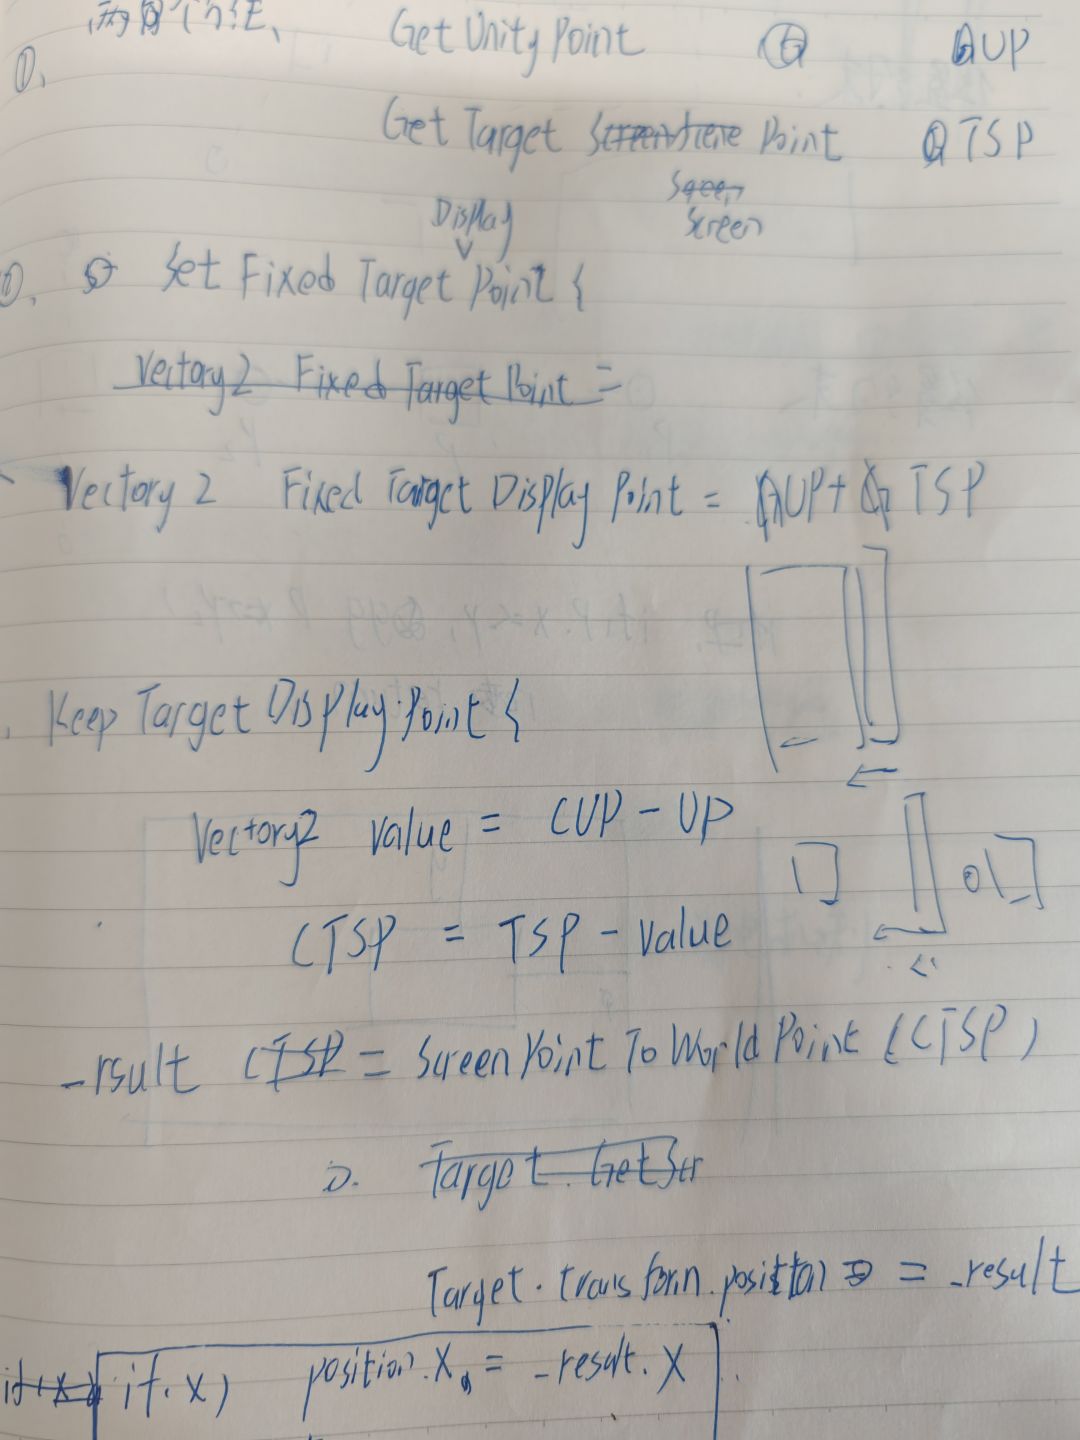 两个方法、 Get Unity Point G GUP
①.
Get Target Screen Point GTSP
Screen
Display
②. Set Fixed Target Point {
Vectory2 Fixed Target Point =
Vectory 2 Fixed Target Display Point = GUP + G TSP
Keep Target Display Point {
Vectory2 value = CUP - UP
CTSP = TSP - value
_rsult CTSP = Screen Point To World Point (CTSP)
Target. GetScr
Target. transform.position = _result
if.x) position.x = _result.x